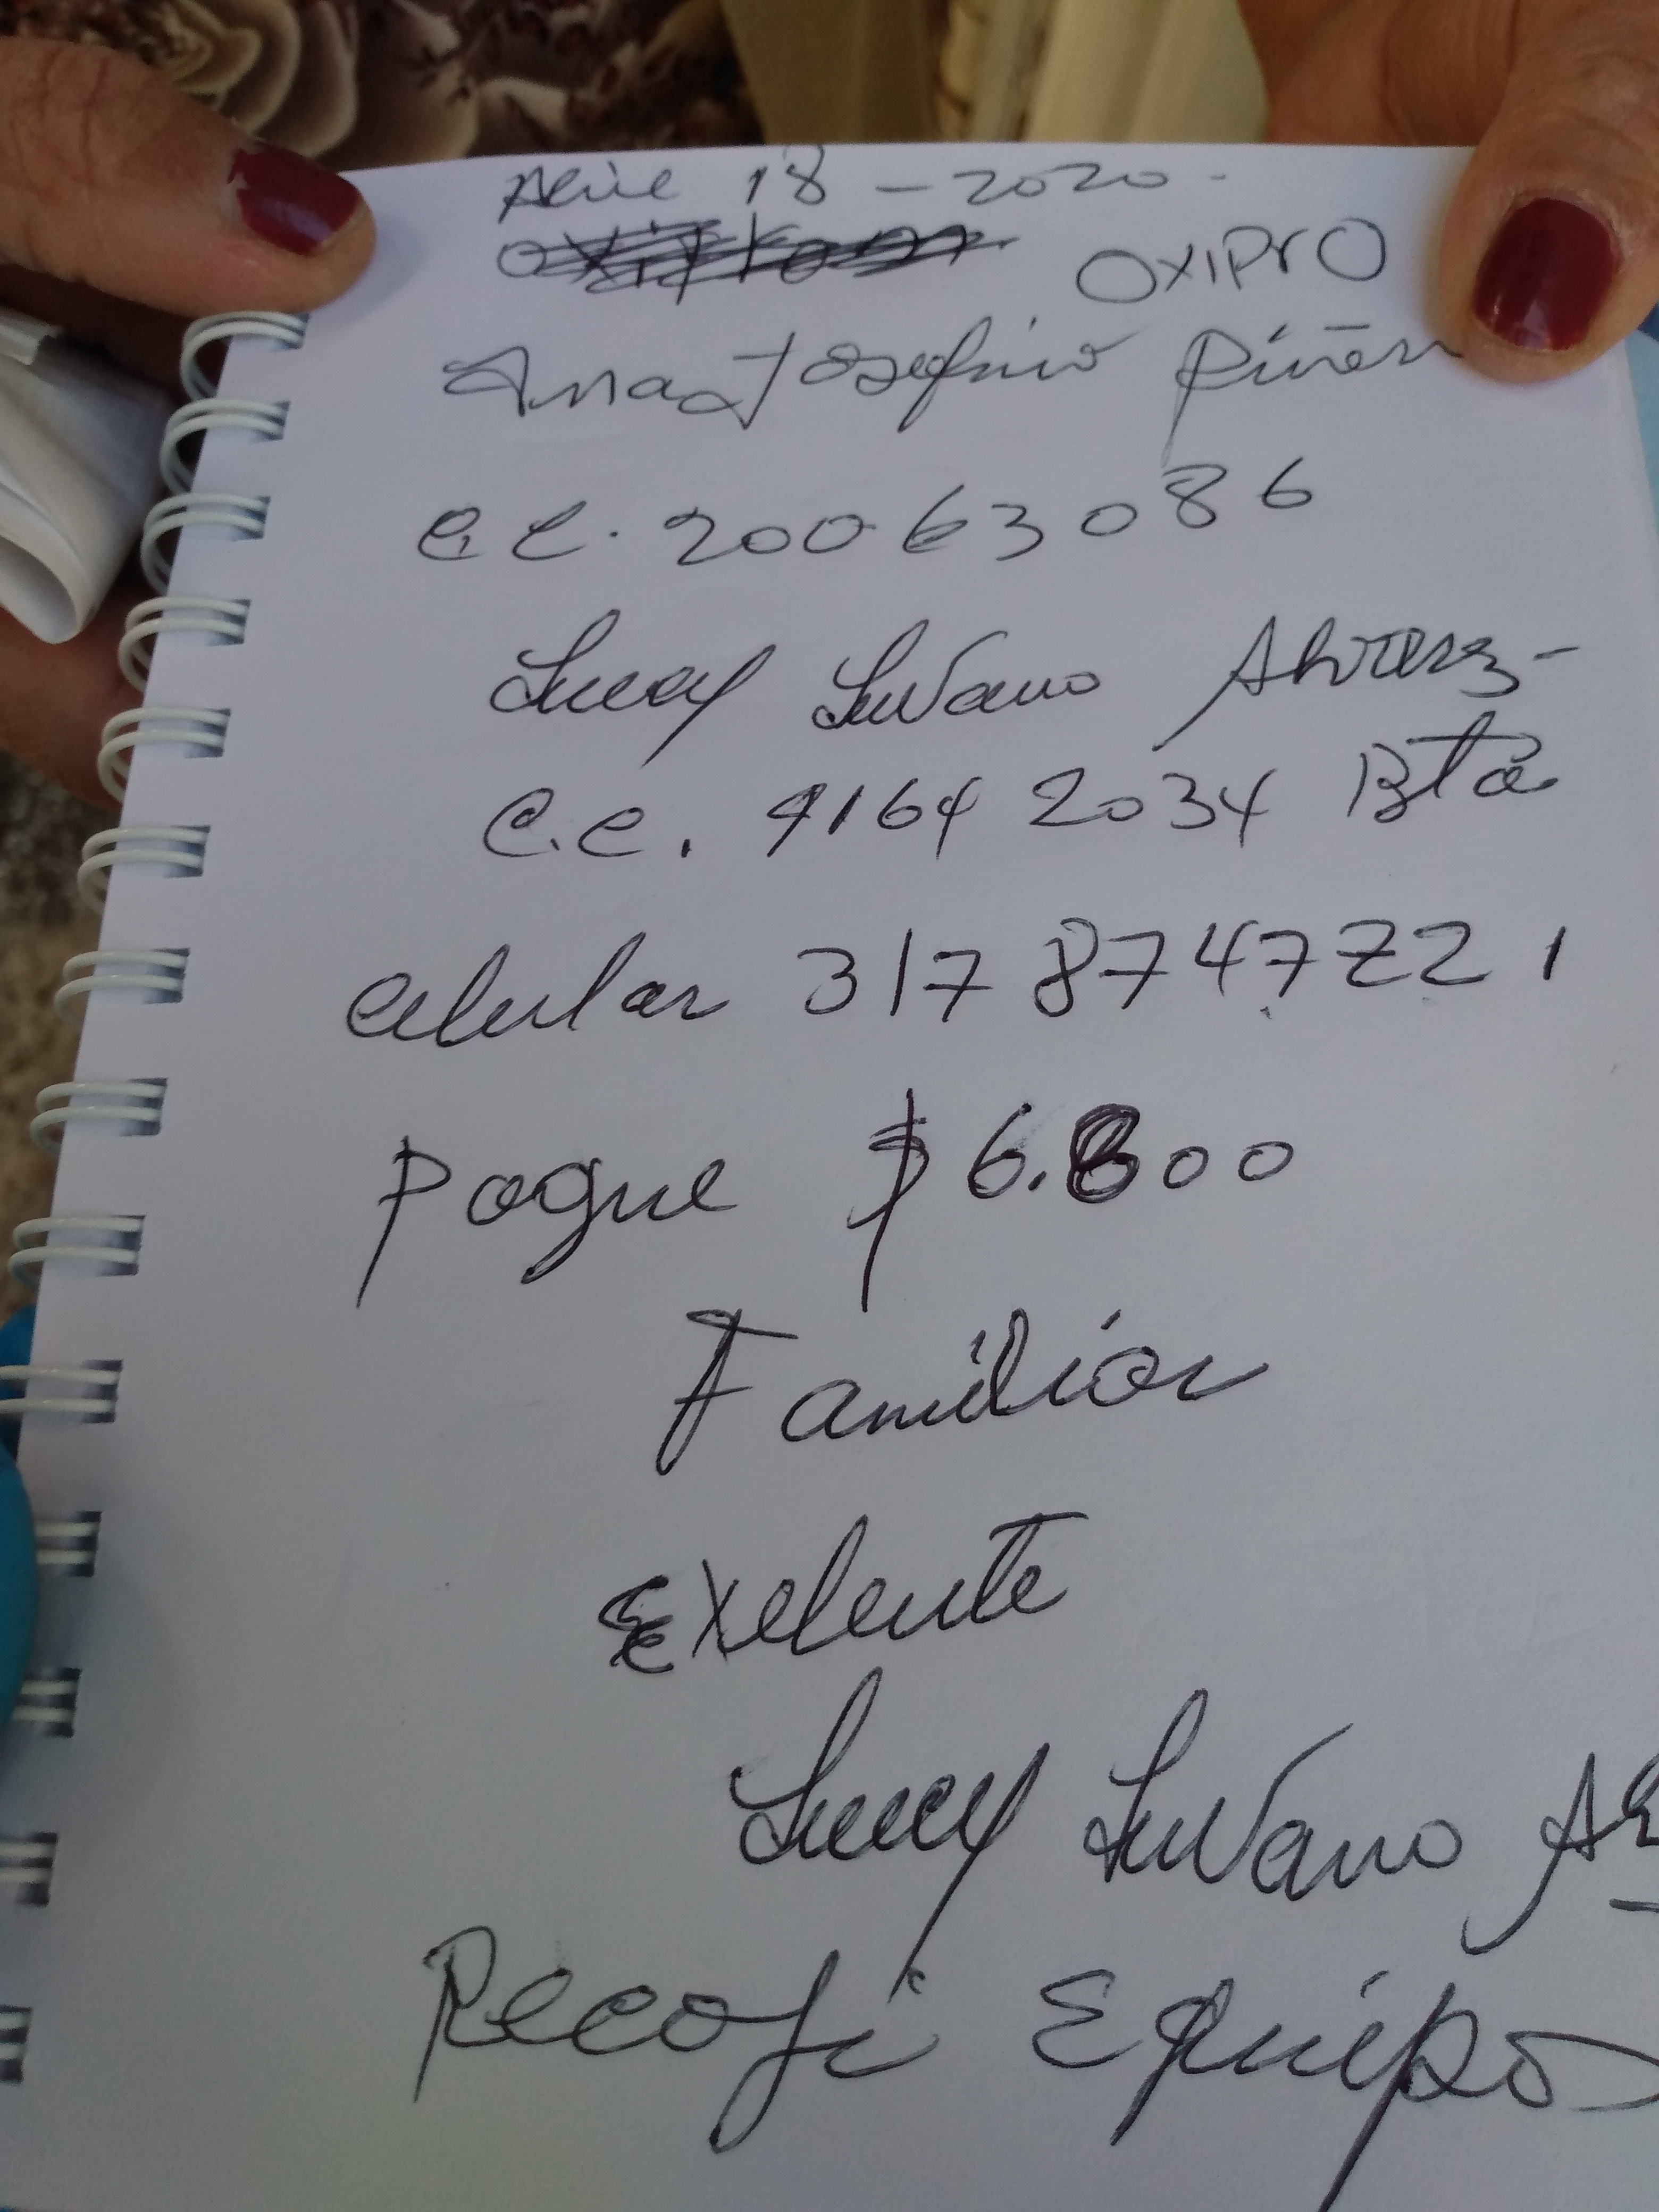 Abril 18 - 2020 -
OXIPrO
Ana Josefina
C.C. 20063086
Lucy Luvano Alvarez -
C.C. 41642034 Bta
Celular 317 8747221
Pague $6.800
Familiar
Exelente
Lucy Luvano
Recoji Equipo